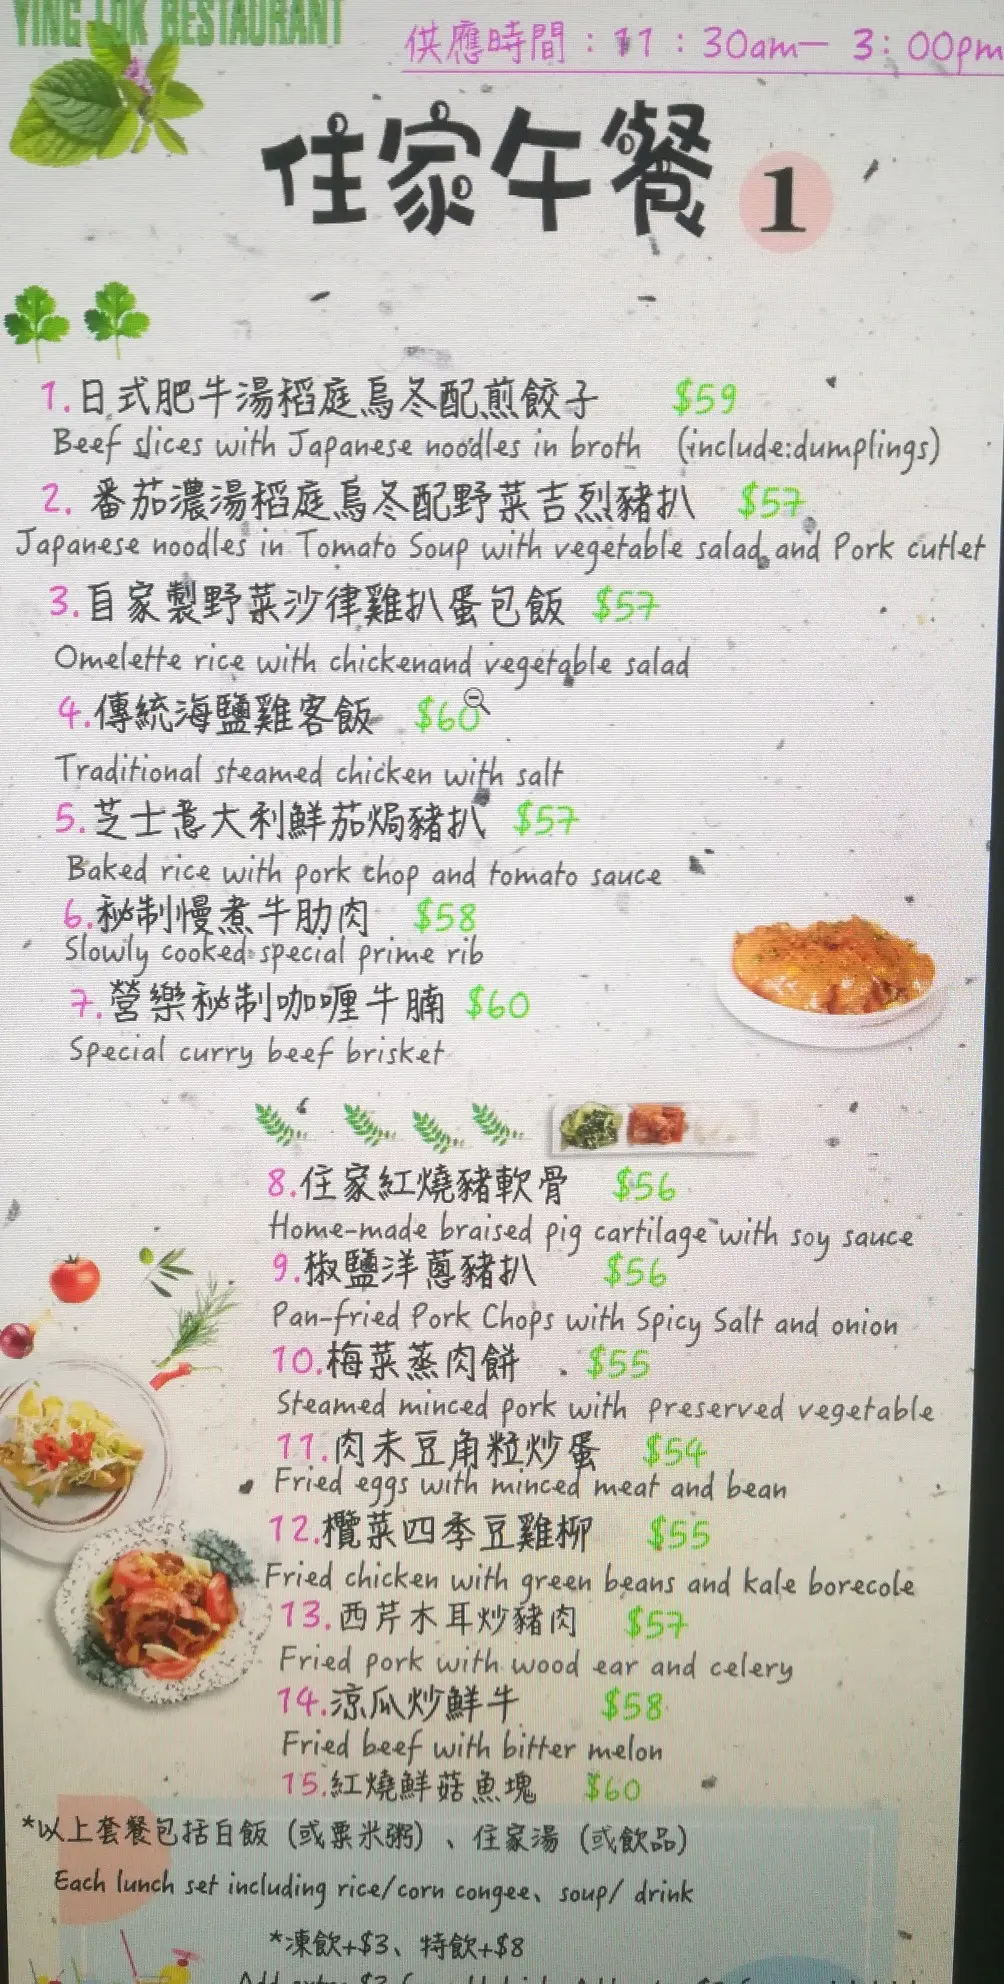 YING LOK RESTAURANT
供應時間：11：30am— 3：00pm
住家午餐 1
1.日式肥牛湯稻庭烏冬配煎餃子 $59
Beef slices with Japanese noodles in broth (include:dumplings)
2. 番茄濃湯稻庭烏冬配野菜吉烈豬扒 $57
Japanese noodles in Tomato Soup with vegetable salad and Pork cutlet
3.自家製野菜沙律雞扒蛋包飯 $57
Omelette rice with chickenand vegetable salad
4.傳統海鹽雞客飯 $60
Traditional steamed chicken with salt
5.芝士意大利鮮茄焗豬扒 $57
Baked rice with pork chop and tomato sauce
6.秘制慢煮牛肋肉 $58
Slowly cooked special prime rib
7.營樂秘制咖喱牛腩 $60
Special curry beef brisket
8.住家紅燒豬軟骨 $56
Home-made braised pig cartilage with soy sauce
9.椒鹽洋蔥豬扒 $56
Pan-fried Pork Chops with Spicy Salt and onion
10.梅菜蒸肉餅 $55
Steamed minced pork with preserved vegetable
11.肉未豆角粒炒蛋 $54
Fried eggs with minced meat and bean
12.欖菜四季豆雞柳 $55
Fried chicken with green beans and kale borecole
13.西芹木耳炒豬肉 $57
Fried pork with wood ear and celery
14.涼瓜炒鮮牛 $58
Fried beef with bitter melon
15.紅燒鮮菇魚塊 $60
*以上套餐包括白飯（或粟米粥）、住家湯（或飲品）
Each lunch set including rice/corn congee、soup/ drink
*凍飲+$3、特飲+$8